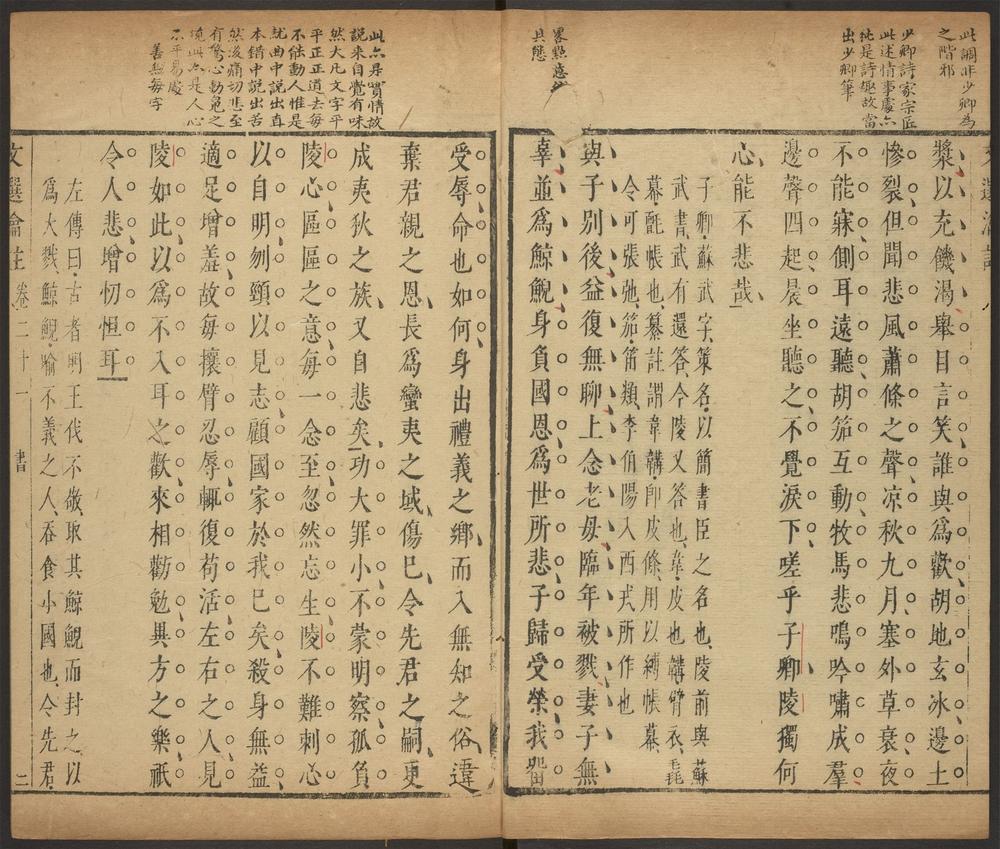 此調非少卿為
之階邪
少卿詩家宗匠
此述情事處亦
純是詩趣故當
出少卿筆
畧點意
其態
漿以充饑渴舉目言笑誰與爲歡胡地玄冰邊土
慘裂但聞悲風蕭條之聲凉秋九月塞外草衰夜
不能寐側耳遠聽胡笳互動牧馬悲鳴吟嘯成羣
邊聲四起晨坐聽之不覺淚下嗟乎子卿陵獨何
心能不悲哉
子卿蘇武字策名以簡書臣之名也陵前與蘇
武書武有還答今陵又答也韋皮也韝臂衣毳
幕氈帳也纂註謂韋韝卽皮條用以縛帳幕
令可張弛笳笛類李伯陽入西戎所作也
與子別後益復無聊上念老母臨年被戮妻子無
辜並爲鯨鯢身負國恩爲世所悲子歸受榮我畱
此亦是實情故
說來自覺有味
然大凡文字平
平正正道去每
不能動人惟是
就曲中說出直
本錯中說出苦
然後痛切悲至
有驚心動鬼之
境此亦是人心
不平易處
善無每字
受辱命也如何身出禮義之鄉而入無知之俗違
棄君親之恩長爲蠻夷之域傷已令先君之嗣更
成夷狄之族又自悲矣功大罪小不蒙明察孤負
陵心區區之意每一念至忽然忘生陵不難刺心
以自明刎頸以見志顧國家於我已矣殺身無益
適足增羞故每攘臂忍辱輒復苟活左右之人見
陵如此以爲不入耳之歡來相勸勉異方之樂祇
令人悲增忉怛耳
左傳曰古者明王伐不敬取其鯨鯢而封之以
爲大戮鯨鯢喻不義之人吞食小國也令先君
文選瀹註 卷二十一 書 二